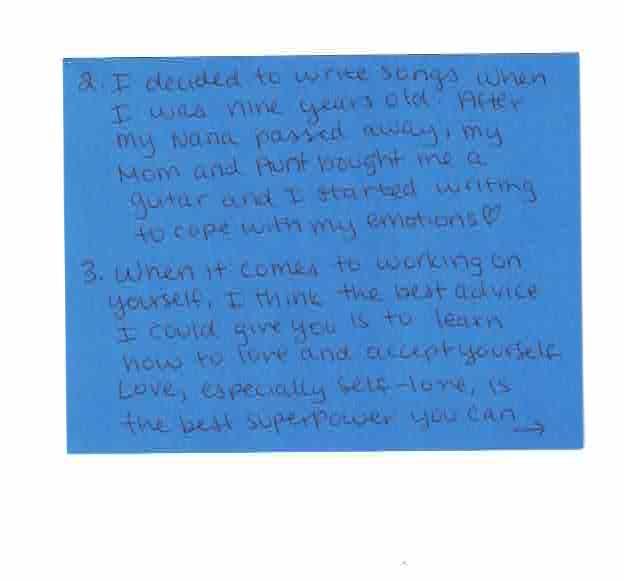 2. I decided to write songs when
I was nine years old. After
my Nana passed away, my
Mom and Aunt bought me a
gutar and I started writing
to cope with my emotions♡
3. When it comes to working on
yourself, I think the best advice
I could give you is to learn
how to love and accept yourself
Love, especially self-love, is
the best superpower you can →